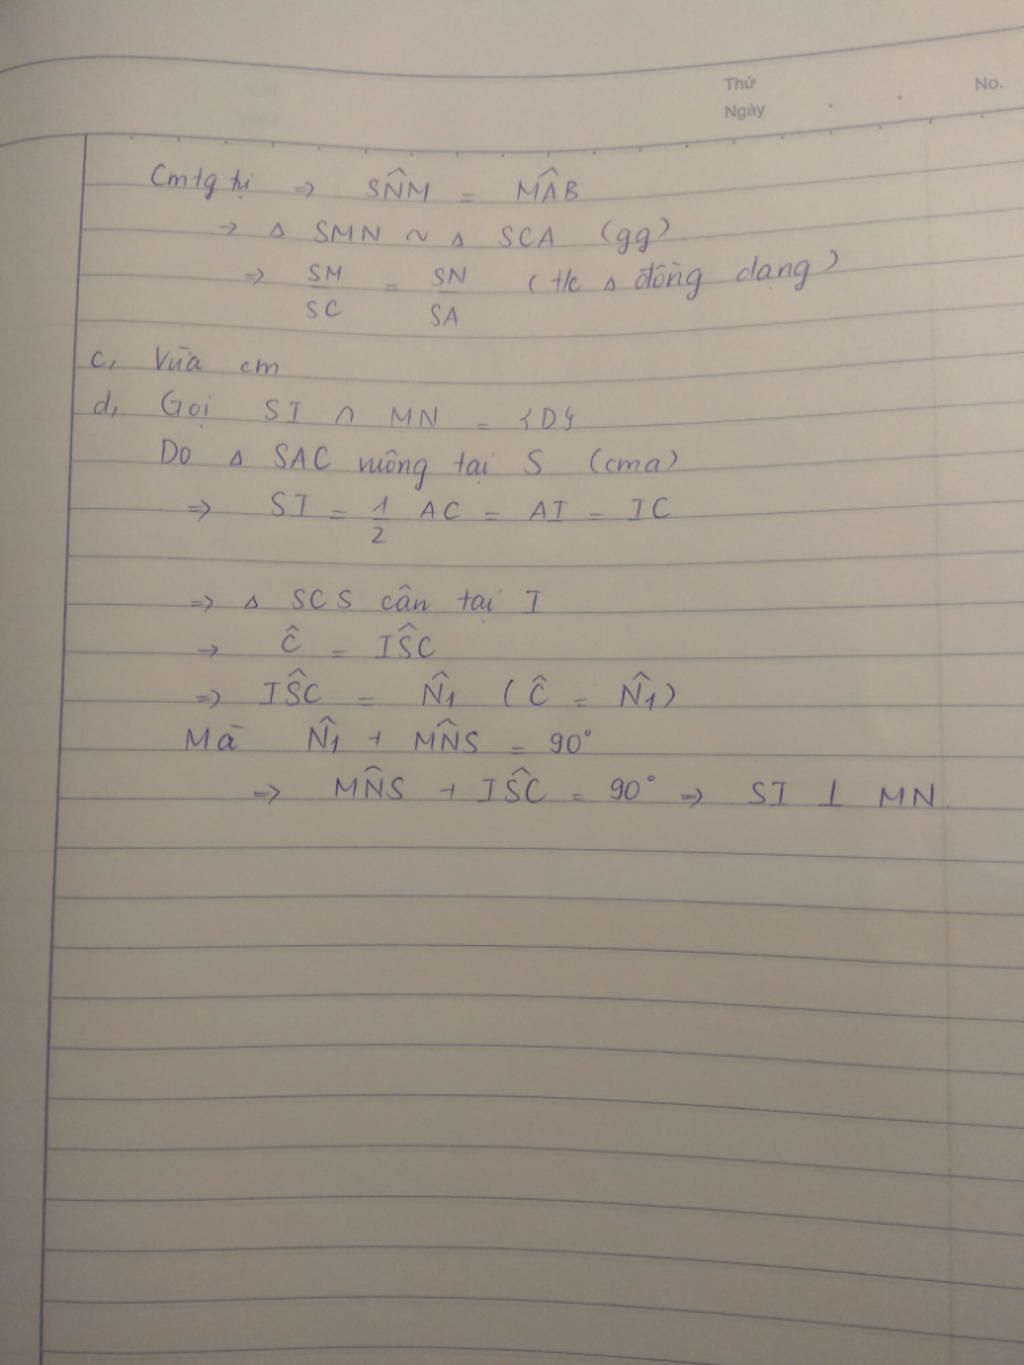 Thứ
No.
Ngày
Cmtg tự => SN̂M = MÂB
-> Δ SMN ~ Δ SCA (gg)
=> SM/SC = SN/SA (t/c Δ đồng dạng)
c, Vừa cm
d, Gọi SI ∩ MN = {D}
Do Δ SAC vuông tại S (cma)
=> SI = 1/2 AC = AI = IC
=> Δ SCS cân tại I
-> Ĉ = IŜC
=> IŜC = N̂1 (Ĉ = N̂1)
Mà N̂1 + MN̂S = 90°
=> MN̂S + IŜC = 90° => SI ⊥ MN